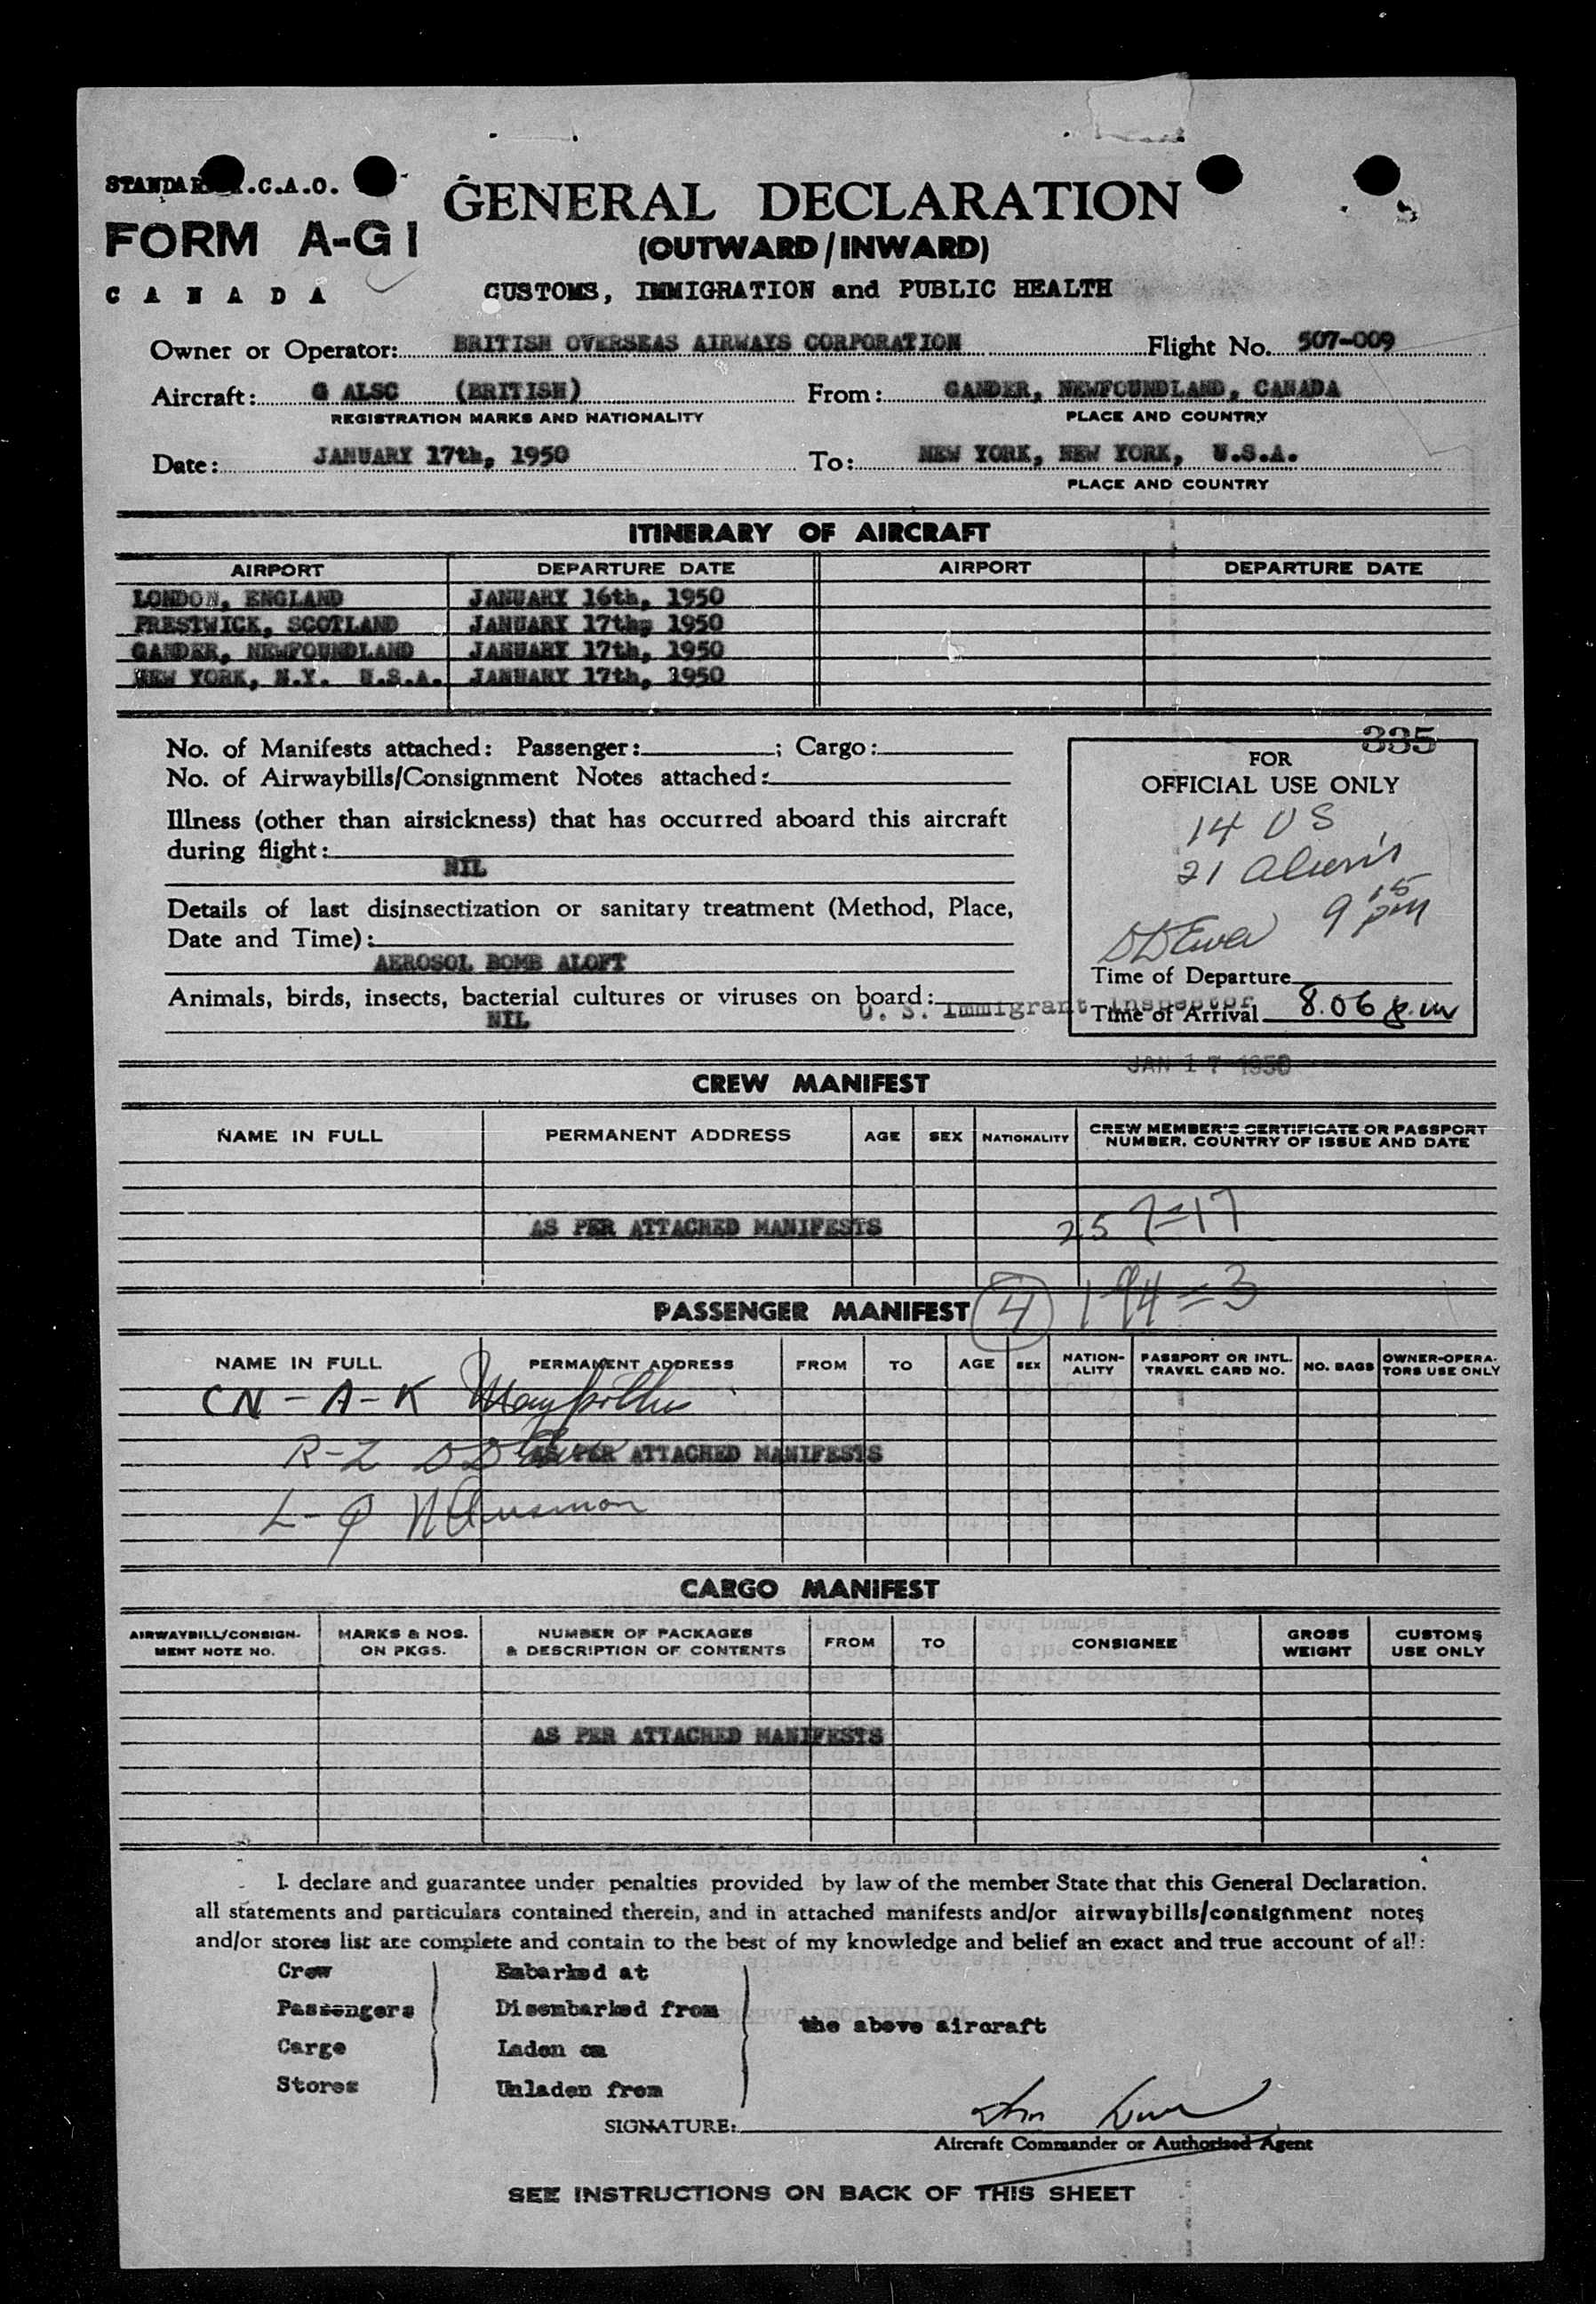 STANDARD I.C.A.O.
FORM A-G1
CANADA
GENERAL DECLARATION
(OUTWARD/INWARD)
CUSTOMS, IMMIGRATION and PUBLIC HEALTH
Owner or Operator: BRITISH OVERSEAS AIRWAYS CORPORATION Flight No. 507-009
Aircraft: G ALSC (BRITISH) From: GANDER, NEWFOUNDLAND, CANADA
REGISTRATION MARKS AND NATIONALITY PLACE AND COUNTRY
Date: JANUARY 17th, 1950 To: NEW YORK, NEW YORK, U.S.A.
PLACE AND COUNTRY
ITINERARY OF AIRCRAFT
AIRPORT DEPARTURE DATE AIRPORT DEPARTURE DATE
LONDON, ENGLAND JANUARY 16th, 1950
PRESTWICK, SCOTLAND JANUARY 17th, 1950
GANDER, NEWFOUNDLAND JANUARY 17th, 1950
NEW YORK, N.Y. U.S.A. JANUARY 17th, 1950
No. of Manifests attached: Passenger: ; Cargo:
No. of Airwaybills/Consignment Notes attached:
Illness (other than airsickness) that has occurred aboard this aircraft
during flight:
NIL
Details of last disinsectization or sanitary treatment (Method, Place,
Date and Time):
AEROSOL BOMB ALOFT
Animals, birds, insects, bacterial cultures or viruses on board:
NIL
335
FOR
OFFICIAL USE ONLY
14 US
21 Aliens
9 15 pm
Time of Departure
U. S. Immigrant Inspector
Time of Arrival 8.06 p.m
JAN 17 1950
CREW MANIFEST
NAME IN FULL PERMANENT ADDRESS AGE SEX NATIONALITY CREW MEMBER'S CERTIFICATE OR PASSPORT
NUMBER, COUNTRY OF ISSUE AND DATE
AS PER ATTACHED MANIFESTS
257=17
PASSENGER MANIFEST 4 194=3
NAME IN FULL PERMANENT ADDRESS FROM TO AGE SEX NATION-
ALITY PASSPORT OR INTL.
TRAVEL CARD NO. NO. BAGS OWNER-OPERA-
TORS USE ONLY
CN - A - K
R-Z
AS PER ATTACHED MANIFESTS
L-Q
CARGO MANIFEST
AIRWAYBILL/CONSIGN-
MENT NOTE NO. MARKS & NOS.
ON PKGS. NUMBER OF PACKAGES
& DESCRIPTION OF CONTENTS FROM TO CONSIGNEE GROSS
WEIGHT CUSTOMS
USE ONLY
AS PER ATTACHED MANIFESTS
I declare and guarantee under penalties provided by law of the member State that this General Declaration,
all statements and particulars contained therein, and in attached manifests and/or airwaybills/consignment notes
and/or stores list are complete and contain to the best of my knowledge and belief an exact and true account of all:
Crew Embarked at
Passengers Disembarked from
the above aircraft
Cargo Laden on
Stores Unladen from
SIGNATURE:
Aircraft Commander or Authorised Agent
SEE INSTRUCTIONS ON BACK OF THIS SHEET